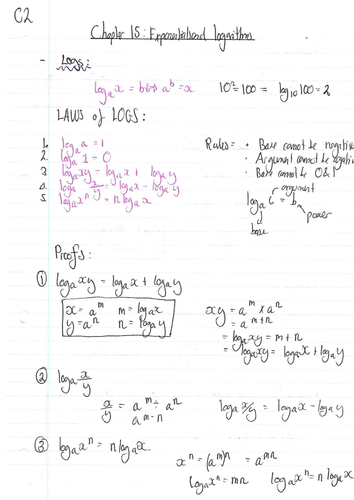 C2
Chapter 15: Exponentials and logarithms
- Logs:
logₐx = b ⟺ aᵇ = x    10² = 100 = log₁₀100 = 2
LAWS of LOGS:
1. logₐa = 1
2. logₐ1 = 0
3. logₐxy = logₐx + logₐy
4. logₐ x/y = logₐx - logₐy
5. logₐxⁿ = n logₐx
Rules = • Base cannot be negative
• Argument cannot be negative
• Base cannot be 0 & 1
argument
logₐ c = b
power
base
Proofs:
① logₐxy = logₐx + logₐy
x = aᵐ   m = logₐx
y = aⁿ   n = logₐy
xy = aᵐ × aⁿ
= aᵐ⁺ⁿ
= logₐxy = m + n
= logₐxy = logₐx + logₐy
② logₐ x/y
x/y = aᵐ ÷ aⁿ
aᵐ⁻ⁿ
logₐx/y = logₐx - logₐy
③ logₐxⁿ = n logₐx
xⁿ = (aᵐ)ⁿ = aᵐⁿ
logₐxⁿ = mn    logₐxⁿ = n logₐx